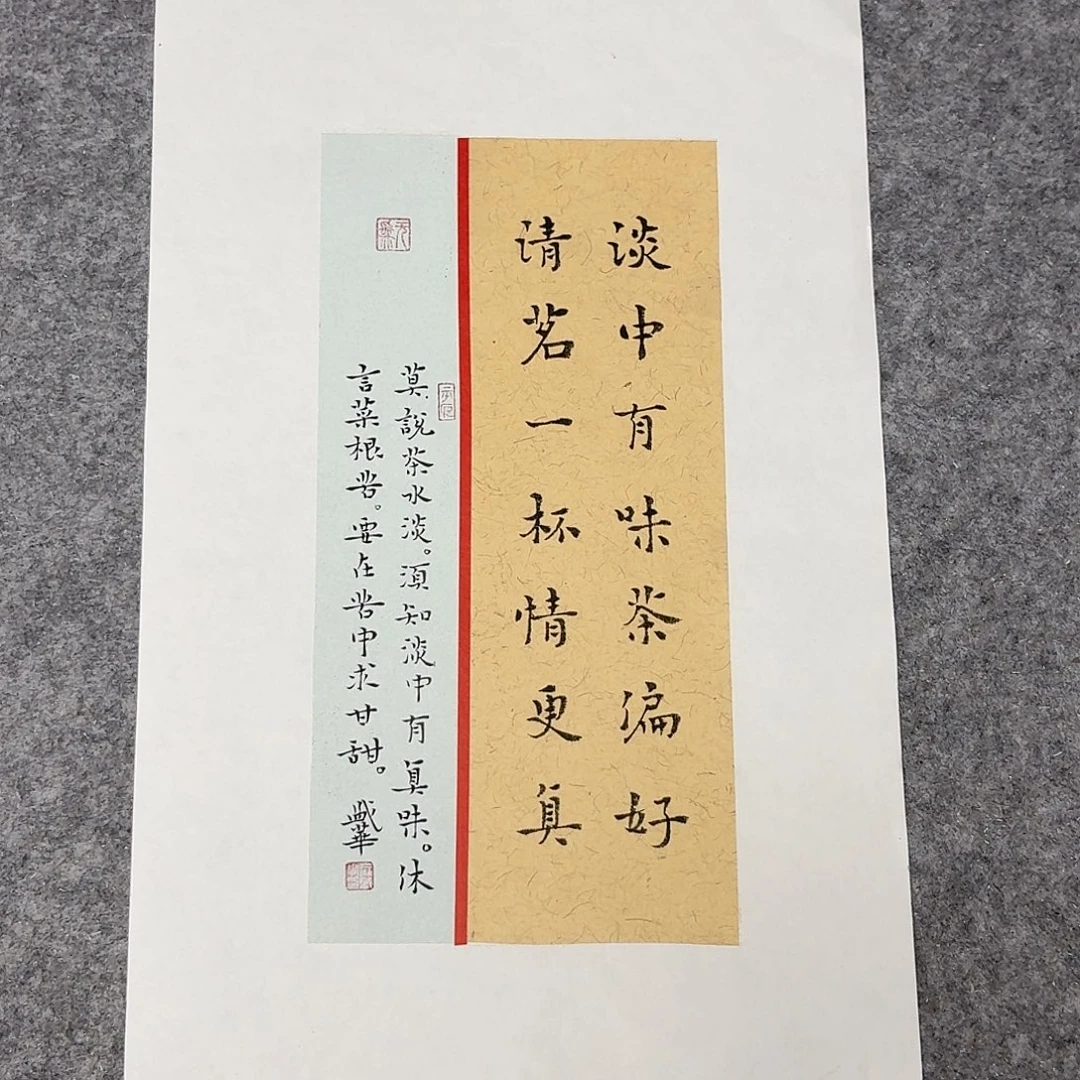 淡中有味茶偏好
请茗一杯情更真
莫說茶水淡。湏知淡中有真味。休
言菜根苦。要在苦中求甘甜。盛華